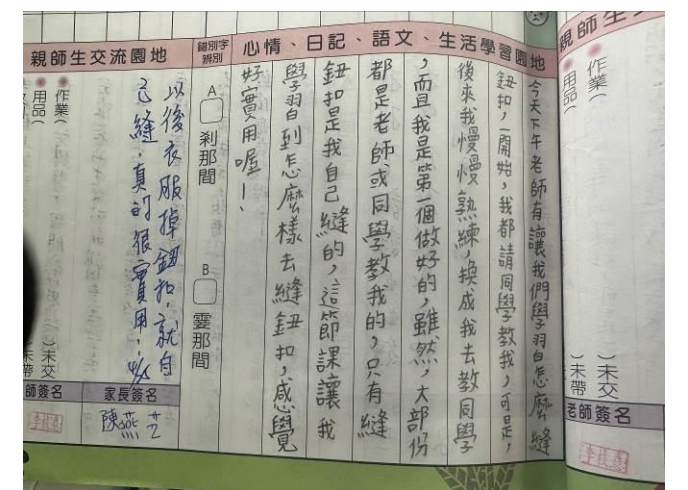 心情、日記、語文、生活學習園地
今天下午老師有讓我們學習自怎麼縫
鈕扣，一開始，我都請同學教我，可是，
後來我慢慢熟練，換成我去教同學
，而且我是第一個做好的，雖然，大部份
都是老師或同學教我的，只有縫
鈕扣是我自己縫的，這節課讓我
學習到怎麼樣去縫鈕扣，感覺
好實用喔！、
錯別字辨別
A
剎那間
B
霎那間
親師生交流園地
以後衣服掉鈕扣，就自
己縫，真的很實用，
作業（
）未交
用品（
）未帶
家長簽名
陳燕
師簽名
親師生
作業（
）未交
用品（
）未帶
老師簽名